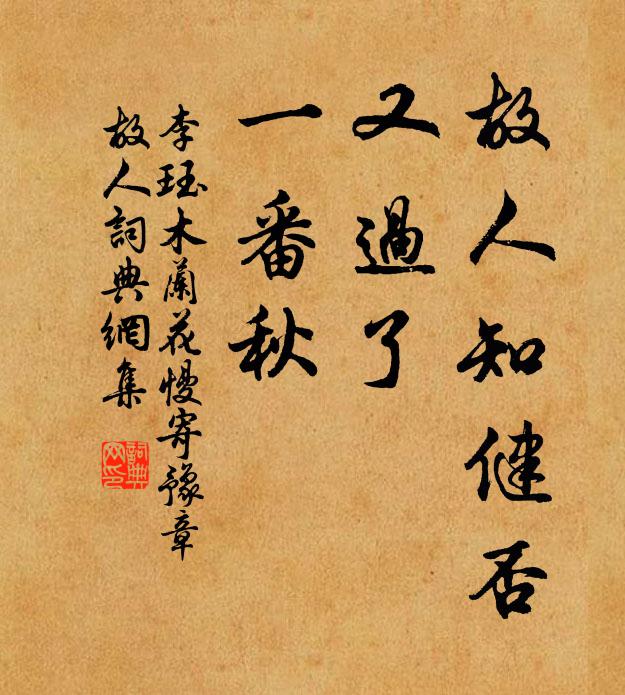 故人知健否
又過了
一番秋
李珏木蘭花慢寄豫章
故人詞典網集
詞典网印